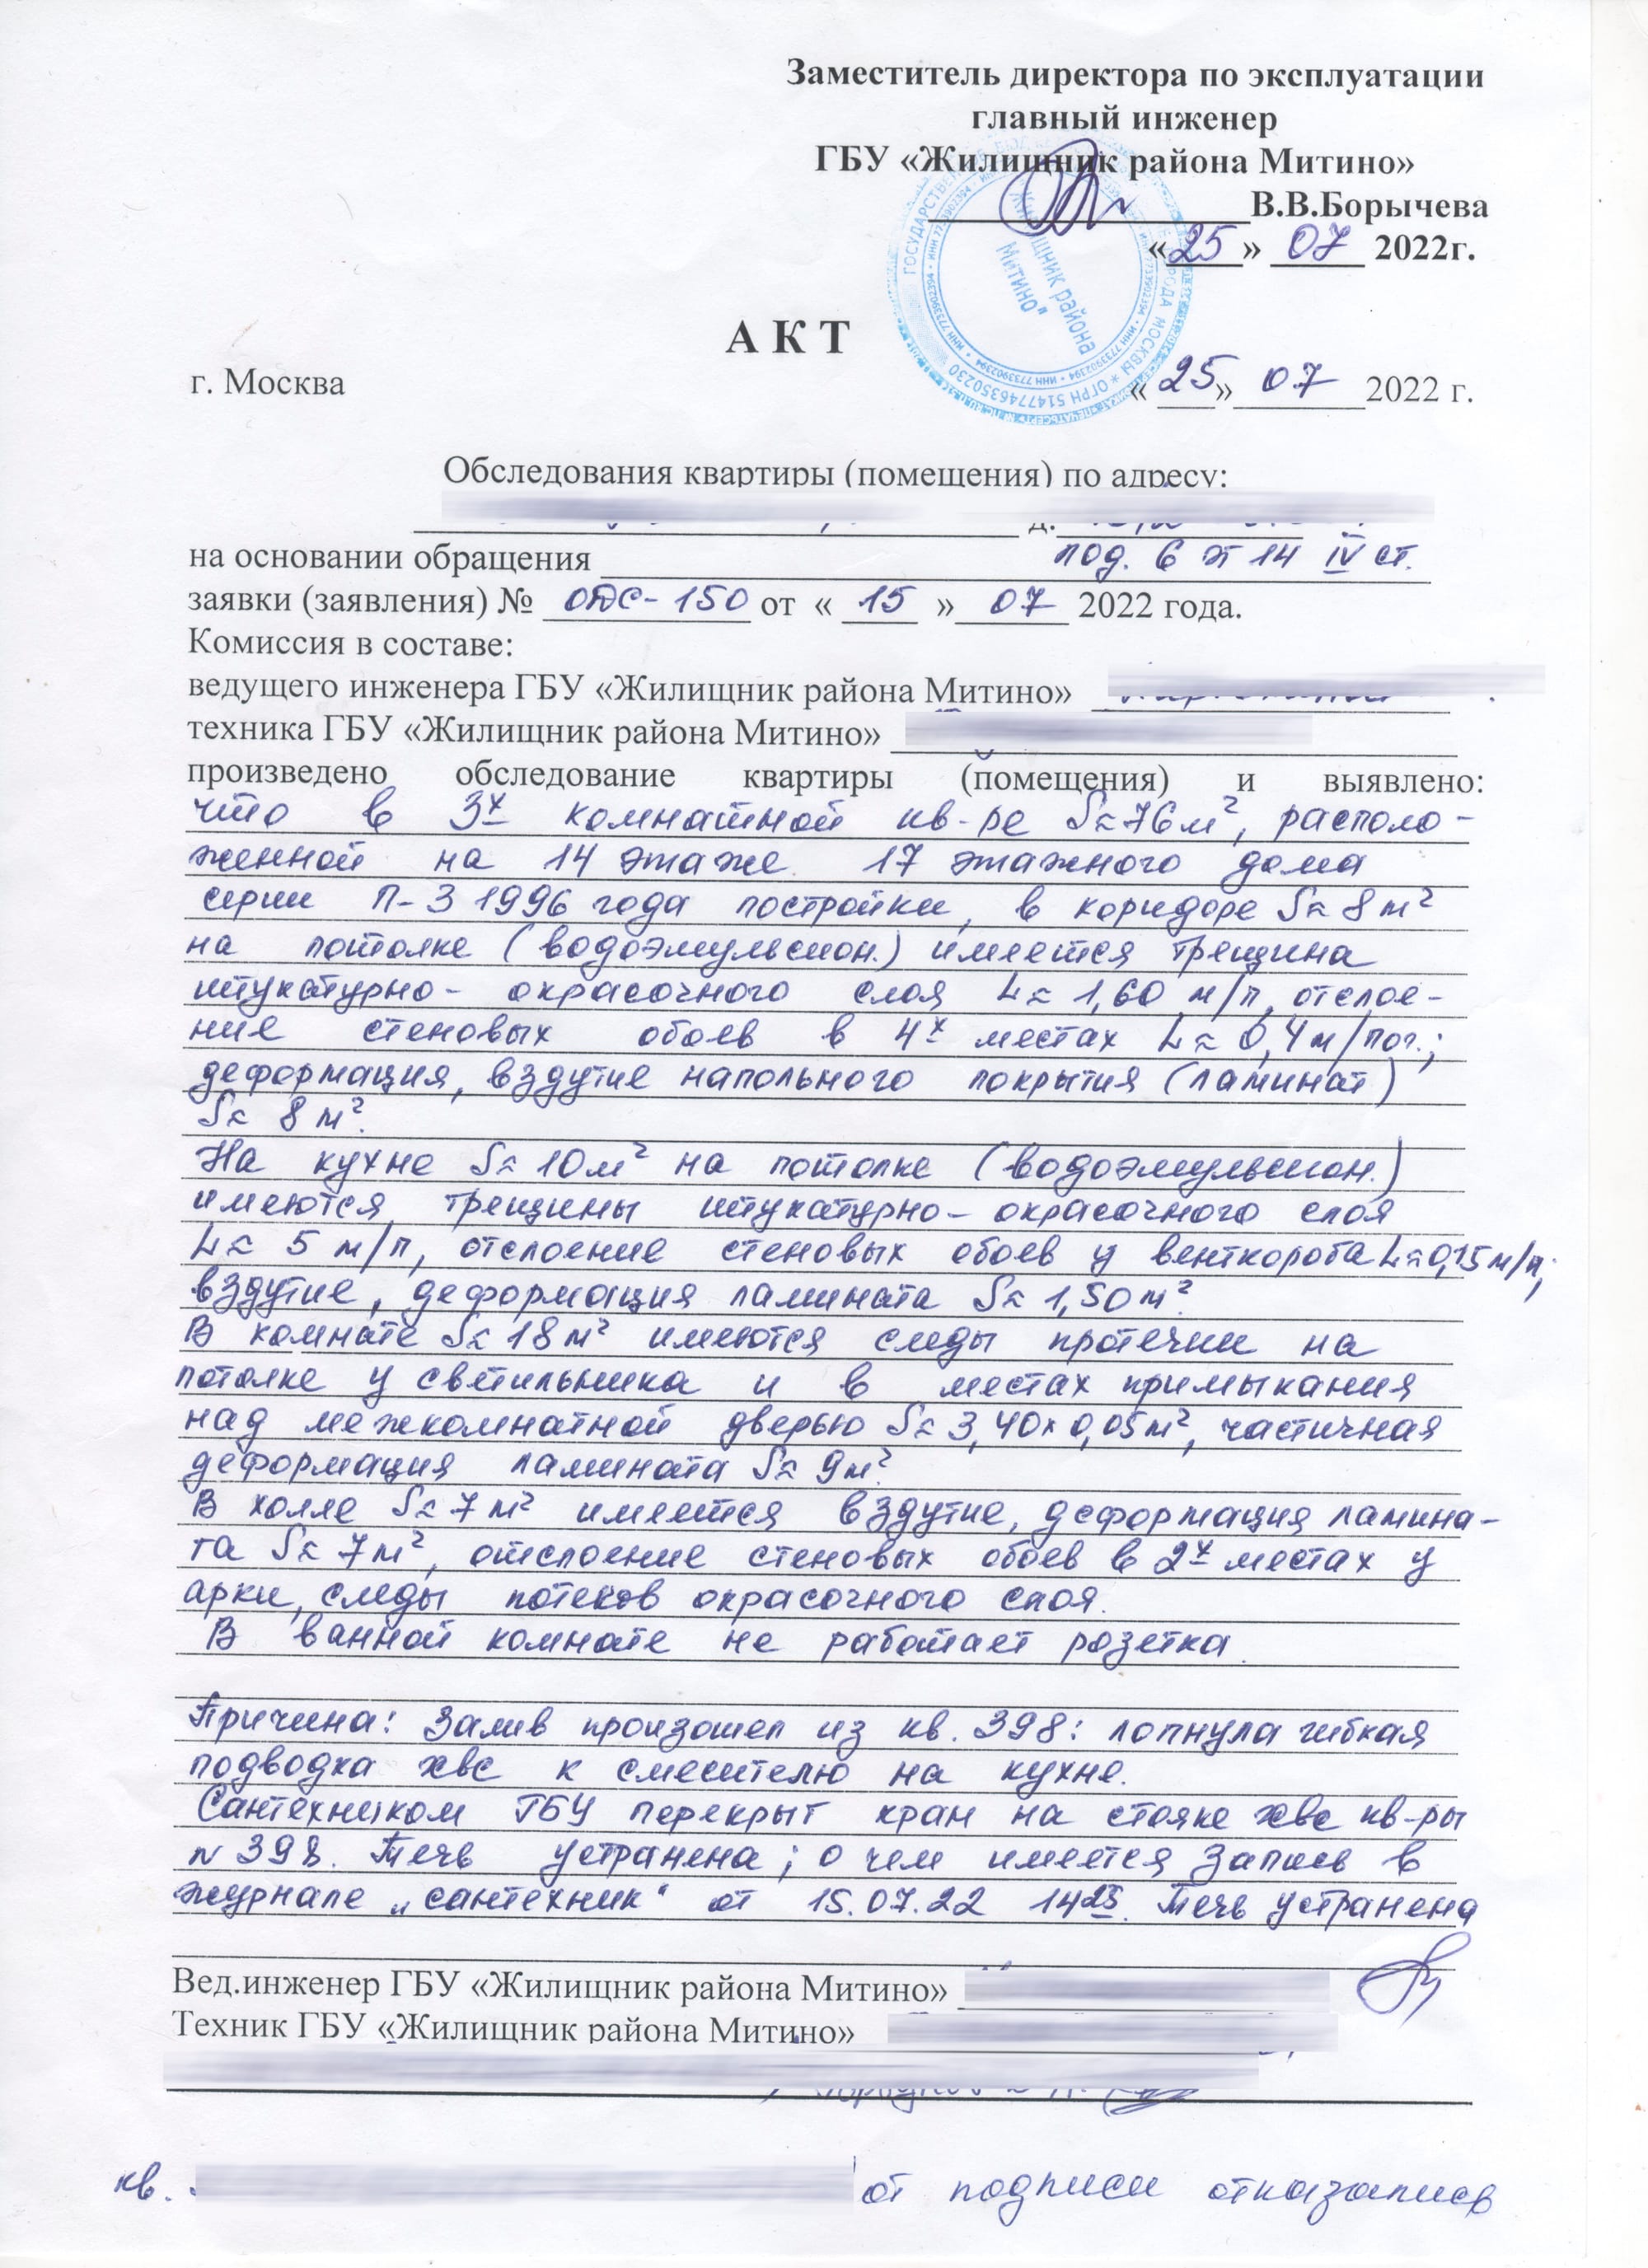 Заместитель директора по эксплуатации
главный инженер
ГБУ «Жилищник района Митино»
В.В.Борычева
«25» 07 2022г.
ГОСУДАРСТВЕН БЮД ГОРОДА МОСКВЫ * ОГРН 5147746350230
ИНН 7733902394 • ИНН 7733902394 • ИНН 7733902394
Жилищник района Митино"
А К Т
г. Москва « 25 » 07 2022 г.
Обследования квартиры (помещения) по адресу:
д.
на основании обращения под. 6 эт 14 IV ст.
заявки (заявления) № ОДС-150 от « 15 » 07 2022 года.
Комиссия в составе:
ведущего инженера ГБУ «Жилищник района Митино»
техника ГБУ «Жилищник района Митино»
произведено обследование квартиры (помещения) и выявлено:
что в 3х комнатной кв-ре S≈76м², располо-
женной на 14 этаже 17 этажного дома
серии П-3 1996 года постройки, в коридоре S≈8м²
на потолке (водоэмульсион.) имеется трещина
штукатурно- окрасочного слоя L≈ 1,60 м/п, отслое-
ние стеновых обоев в 4х местах L≈ 0,4м/пог.;
деформация, вздутие напольного покрытия (ламинат)
S≈ 8м².
На кухне S≈10м² на потолке (водоэмульсион.)
имеются трещины штукатурно- окрасочного слоя
L≈ 5 м/п, отслоение стеновых обоев у венткороба L≈0,15м/п;
вздутие, деформация ламината S≈ 1,50м².
В комнате S≈18м² имеются следы протечки на
потолке у светильника и в местах примыкания
над межкомнатной дверью S≈3,40х0,05м², частичная
деформация ламината S≈ 9м².
В холле S≈7м² имеется вздутие, деформация ламина-
та S≈ 7м², отслоение стеновых обоев в 2х местах у
арки, следы потеков окрасочного слоя.
В ванной комнате не работает розетка.
Причина: Залив произошел из кв. 398: лопнула гибкая
подводка хвс к смесителю на кухне.
Сантехником ГБУ перекрыт кран на стояке хвс кв-ры
№398. Течь устранена; о чем имеется запись в
журнале „сантехник" от 15.07.22 14 25. Течь устранена
Вед.инженер ГБУ «Жилищник района Митино»
Техник ГБУ «Жилищник района Митино»
кв. от подписи отказались